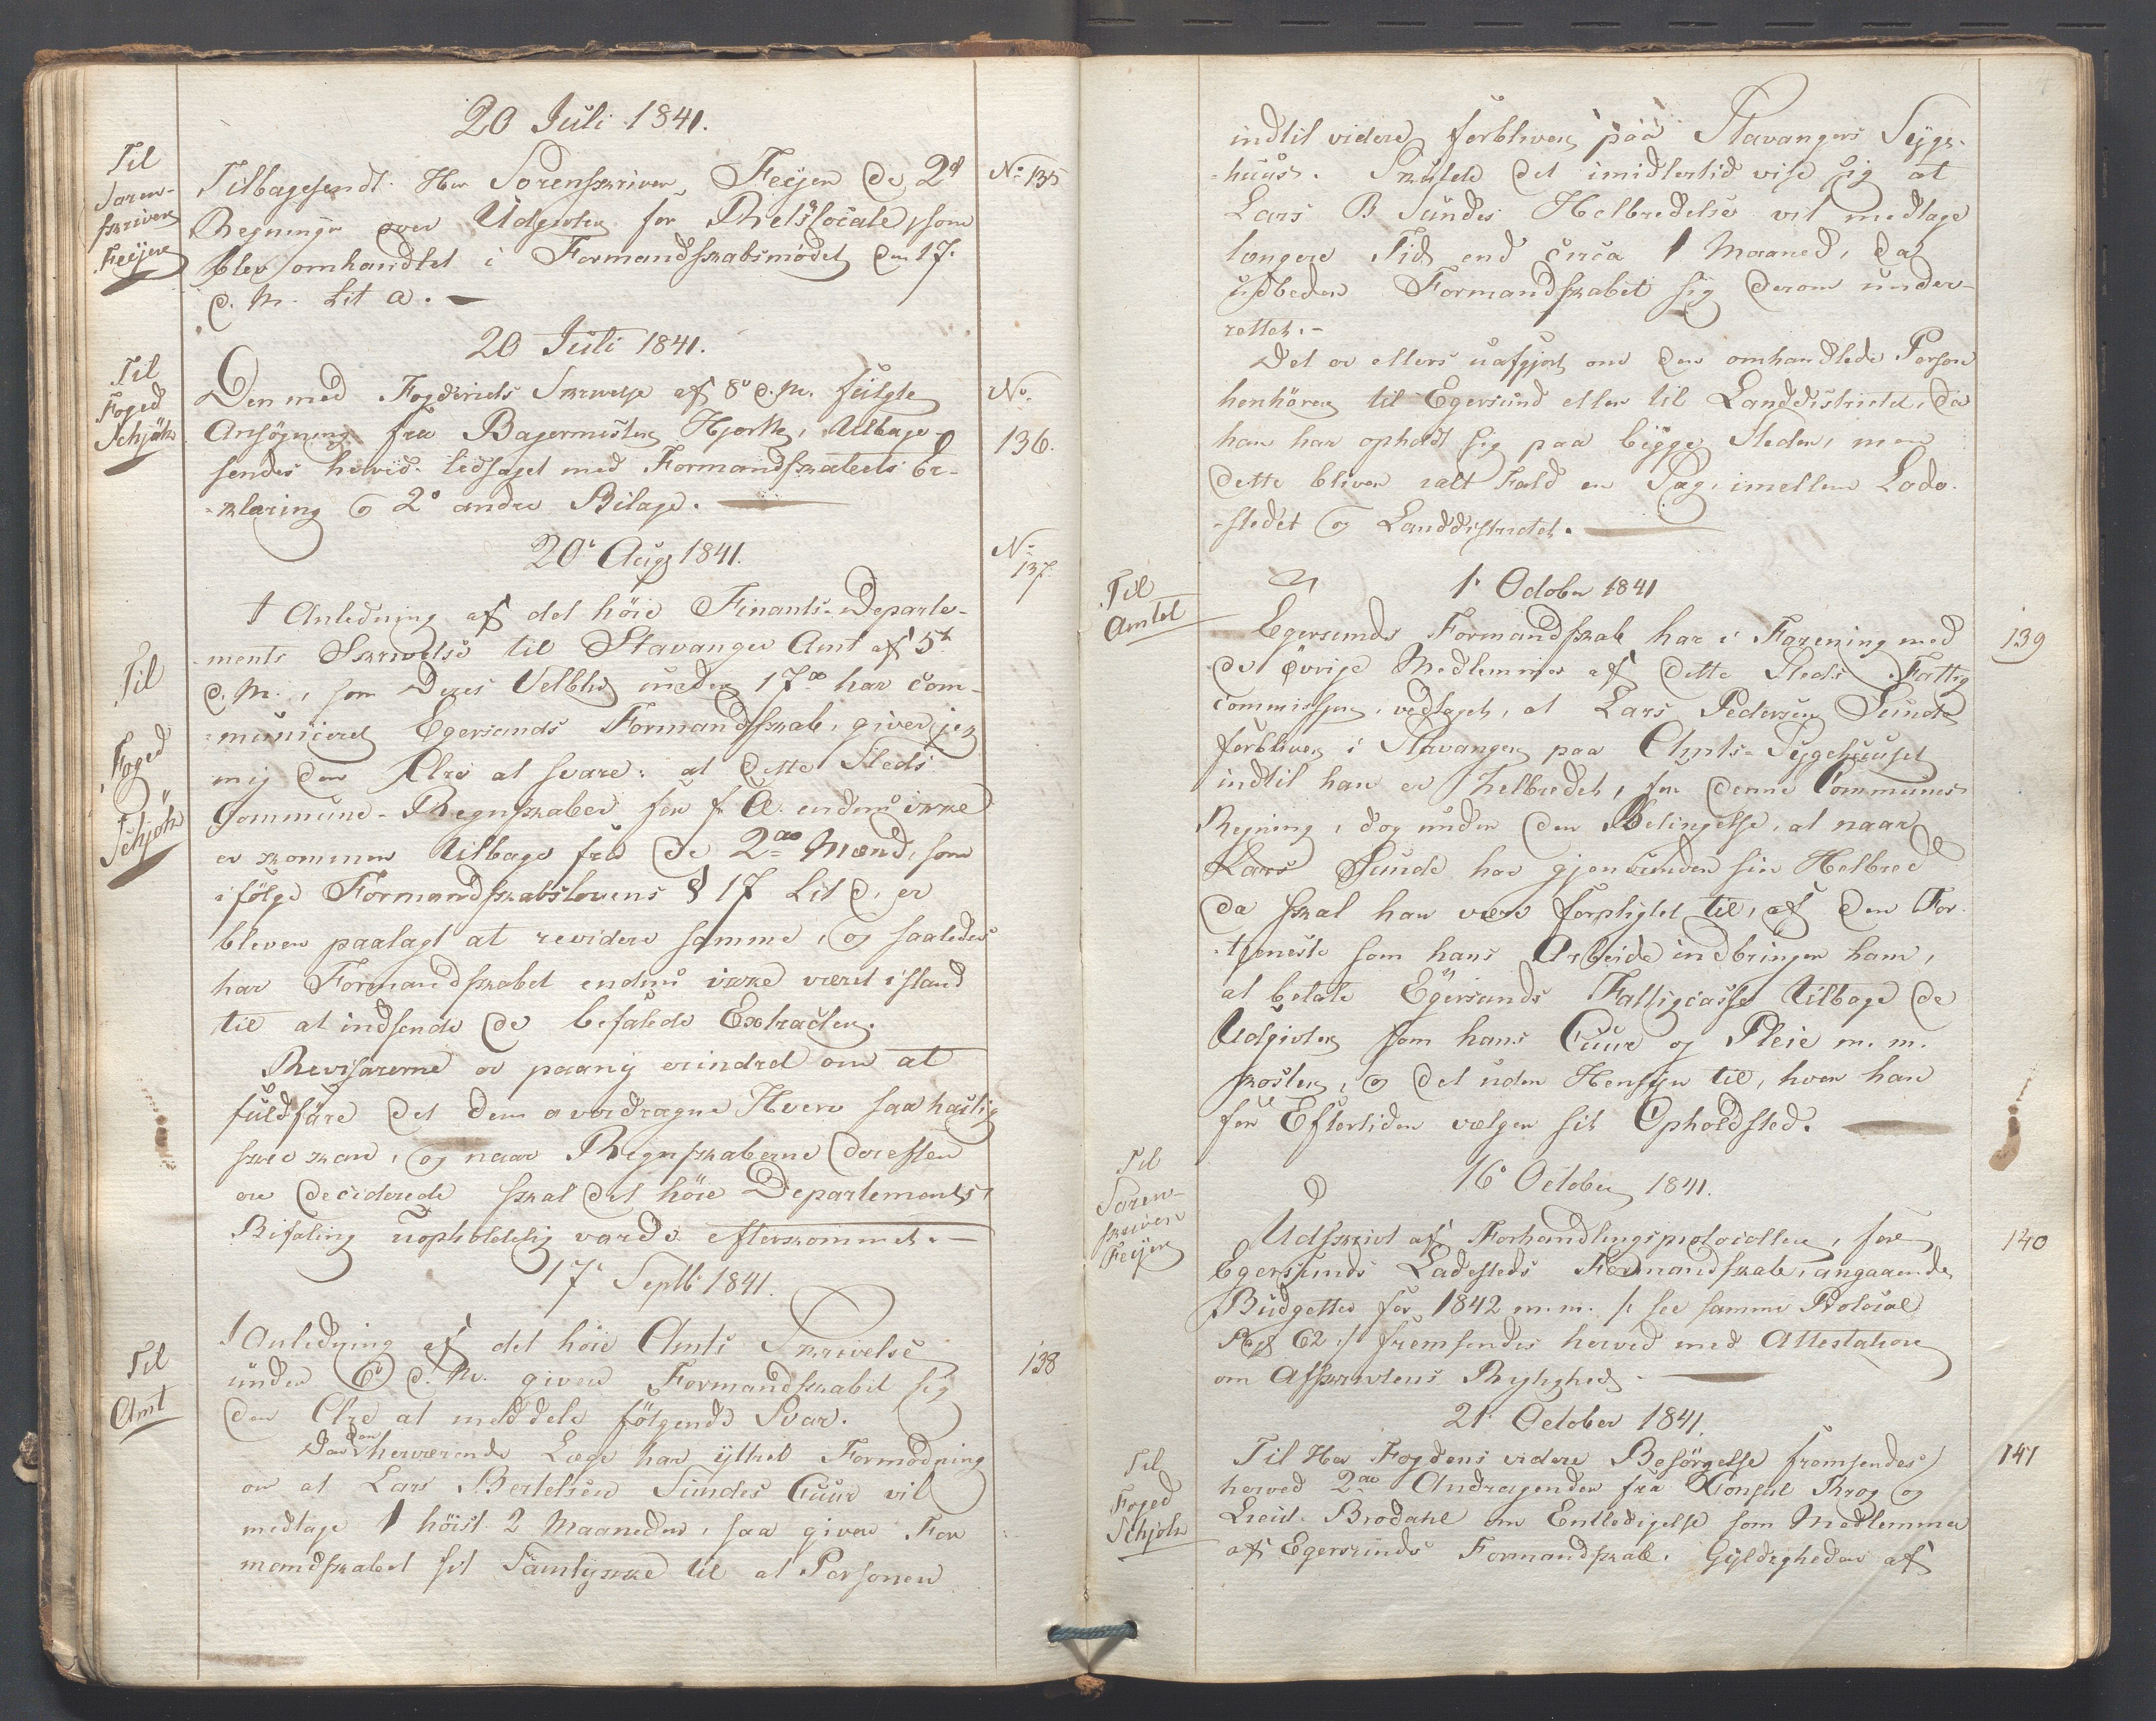 20 Juli 1841.
Til
Soren-
skriver
Feÿer
Tilbagesendt Her Sorenskriver Feÿer de 2de
Regninger over Udgivter for Thetslocale, som
blev omhandlet i Formandskabsmødet den 17.
d. M. Lit a. —
No 135
20 Juli 1841.
Til
Foged
Schjöth
Den med Fogderiets Skrivelse af 8de d. M. fulgte
Ansøgning fra Bagermester Hjorth, tilbage-
sendes herved ledsaget med Formandskabets Er-
-klæring og 2de andre Bilage. —
No.
136.
20de Aug 1841.
No
137.
Til
Foged
Schjöth
I Anledning af det höie Finants-Departe-
ments Skrivelse til Stavanger Amt af 5te
d. M., som Deres Velbhd under 17de har com-
municeret Egersunds Formandskab, giver jeg
mig den Ære at svare: at dette Steds
Commune-Regnskaber for f. A. endnu ikke
er kommen tilbage fra de 2de Mænd, som
ifölge Formandskabslovens § 17 Lit d. er
bleven paalagt at revidere samme, og saaledes
har Formandskabet endnu ikke været istand
til at indsende de befalede Extracter.
Revisorerne er paany erindret om at
fuldføre det dem overdragne Hverv saa hastig
skee kan, og naar Regnskaberne derefter
ere deciderede skal det höie Departements
Befaling uopholdelig vorde efterkommet. —
17de Septb 1841.
Til
Amt
I Anledning af det höie Amts Skrivelse
under 6te d. M. giver Formandskabet sig
den Ære at meddele fölgende Svar.
Da den herværende Læge har yttret Formodning
om at Lars Bertelsen Sundes Cuur vil
medtage 1 höist 2 Maaneder, saa giver For
mandskabet sit Samtykke til at Personen
138
indtil videre forbliver paa Stavangers Syge-
-huus. Skulde det imidlertid vise sig at
Lars B Sundes Helbredelse vil medtage
længere Tid end circa 1 Maaned, da
udbeder Formandskabet sig derom under-
rettet. —
Det er ellers uafgjort om den omhandlede Person
henhörer til Egersund eller til Landdistrictet, da
han har opholdt sig paa begge Steder, men
dette bliver ialt Fald en Sag imellem Lade-
-stedet og Landdistrictet. —
1 October 1841
Til
Amtet
Egersunds Formandskab har i Forening med
de övrige Medlemmer af dette Steds Fattig
commission, vedtaget, at Lars Pedersen Sunde
forbliver i Stavanger paa Amts-Sygehuuset
indtil han er helbredet, for denne Communes
Regning, dog under den Betingelse, at naar
Lars Sunde har gjenvunden sin Helbred
da skal han være forpligtet til, af den For-
-tjeneste som hans Arbeide indbringer ham,
at betale Egersunds Fattigcasse tilbage de
Udgivter som hans Cuur og Pleie m. m.
koster, og det uden Hensyn til, hvor han
for Eftertiden vælger sit Opholdsted. —
139
16de October 1841.
Til
Soren-
skriver
Feÿer
Udskrivt af Forhandlingsprotocollen, for
Egersunds Ladesteds Formandskab, angaaende
Budgettet for 1842 m. m. /: see samme Protocol
Pag 62 :/ fremsendes herved med Attestation
om Afskrivtens Rigtighed. —
140
21 October 1841.
Til
Foged
Schjöth
Til Her Fogdens videre Besörgelse fremsendes
herved 2de Andragender fra Consul Krog og
Lieut. Brodahl om Entledigelse som Medlemmer
af Egersunds Formandskab. Gyldigheden af
141